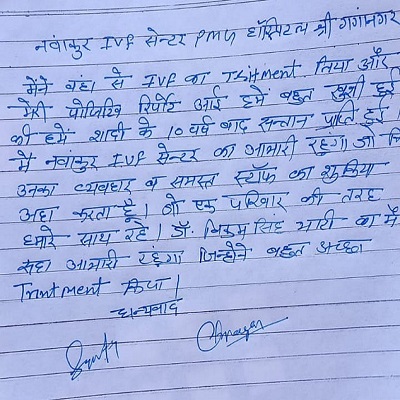 नवांकुर IVF सेन्टर PMG हॉस्पिटल श्री गंगानगर
मैंने यहां से IVF का Tritment लिया और
मेरी पोजिटिव रिपोर्ट आई हमें बहुत खुशी हुई
की हमें शादी के 10 वर्ष बाद सन्तान प्राप्ति हुई।
मैं नवांकुर IVF सेन्टर का आभारी रहूंगा जो कि
उनका व्यवहार व समस्त स्टॉफ का शुक्रिया
अदा करता हूँ। वो एक परिवार की तरह
हमारे साथ रहे। डॉ. विक्रम सिंह भाटी का मैं
सदा आभारी रहूंगा जिन्होंने बहुत अच्छा
Tritment किया।
धन्यवाद